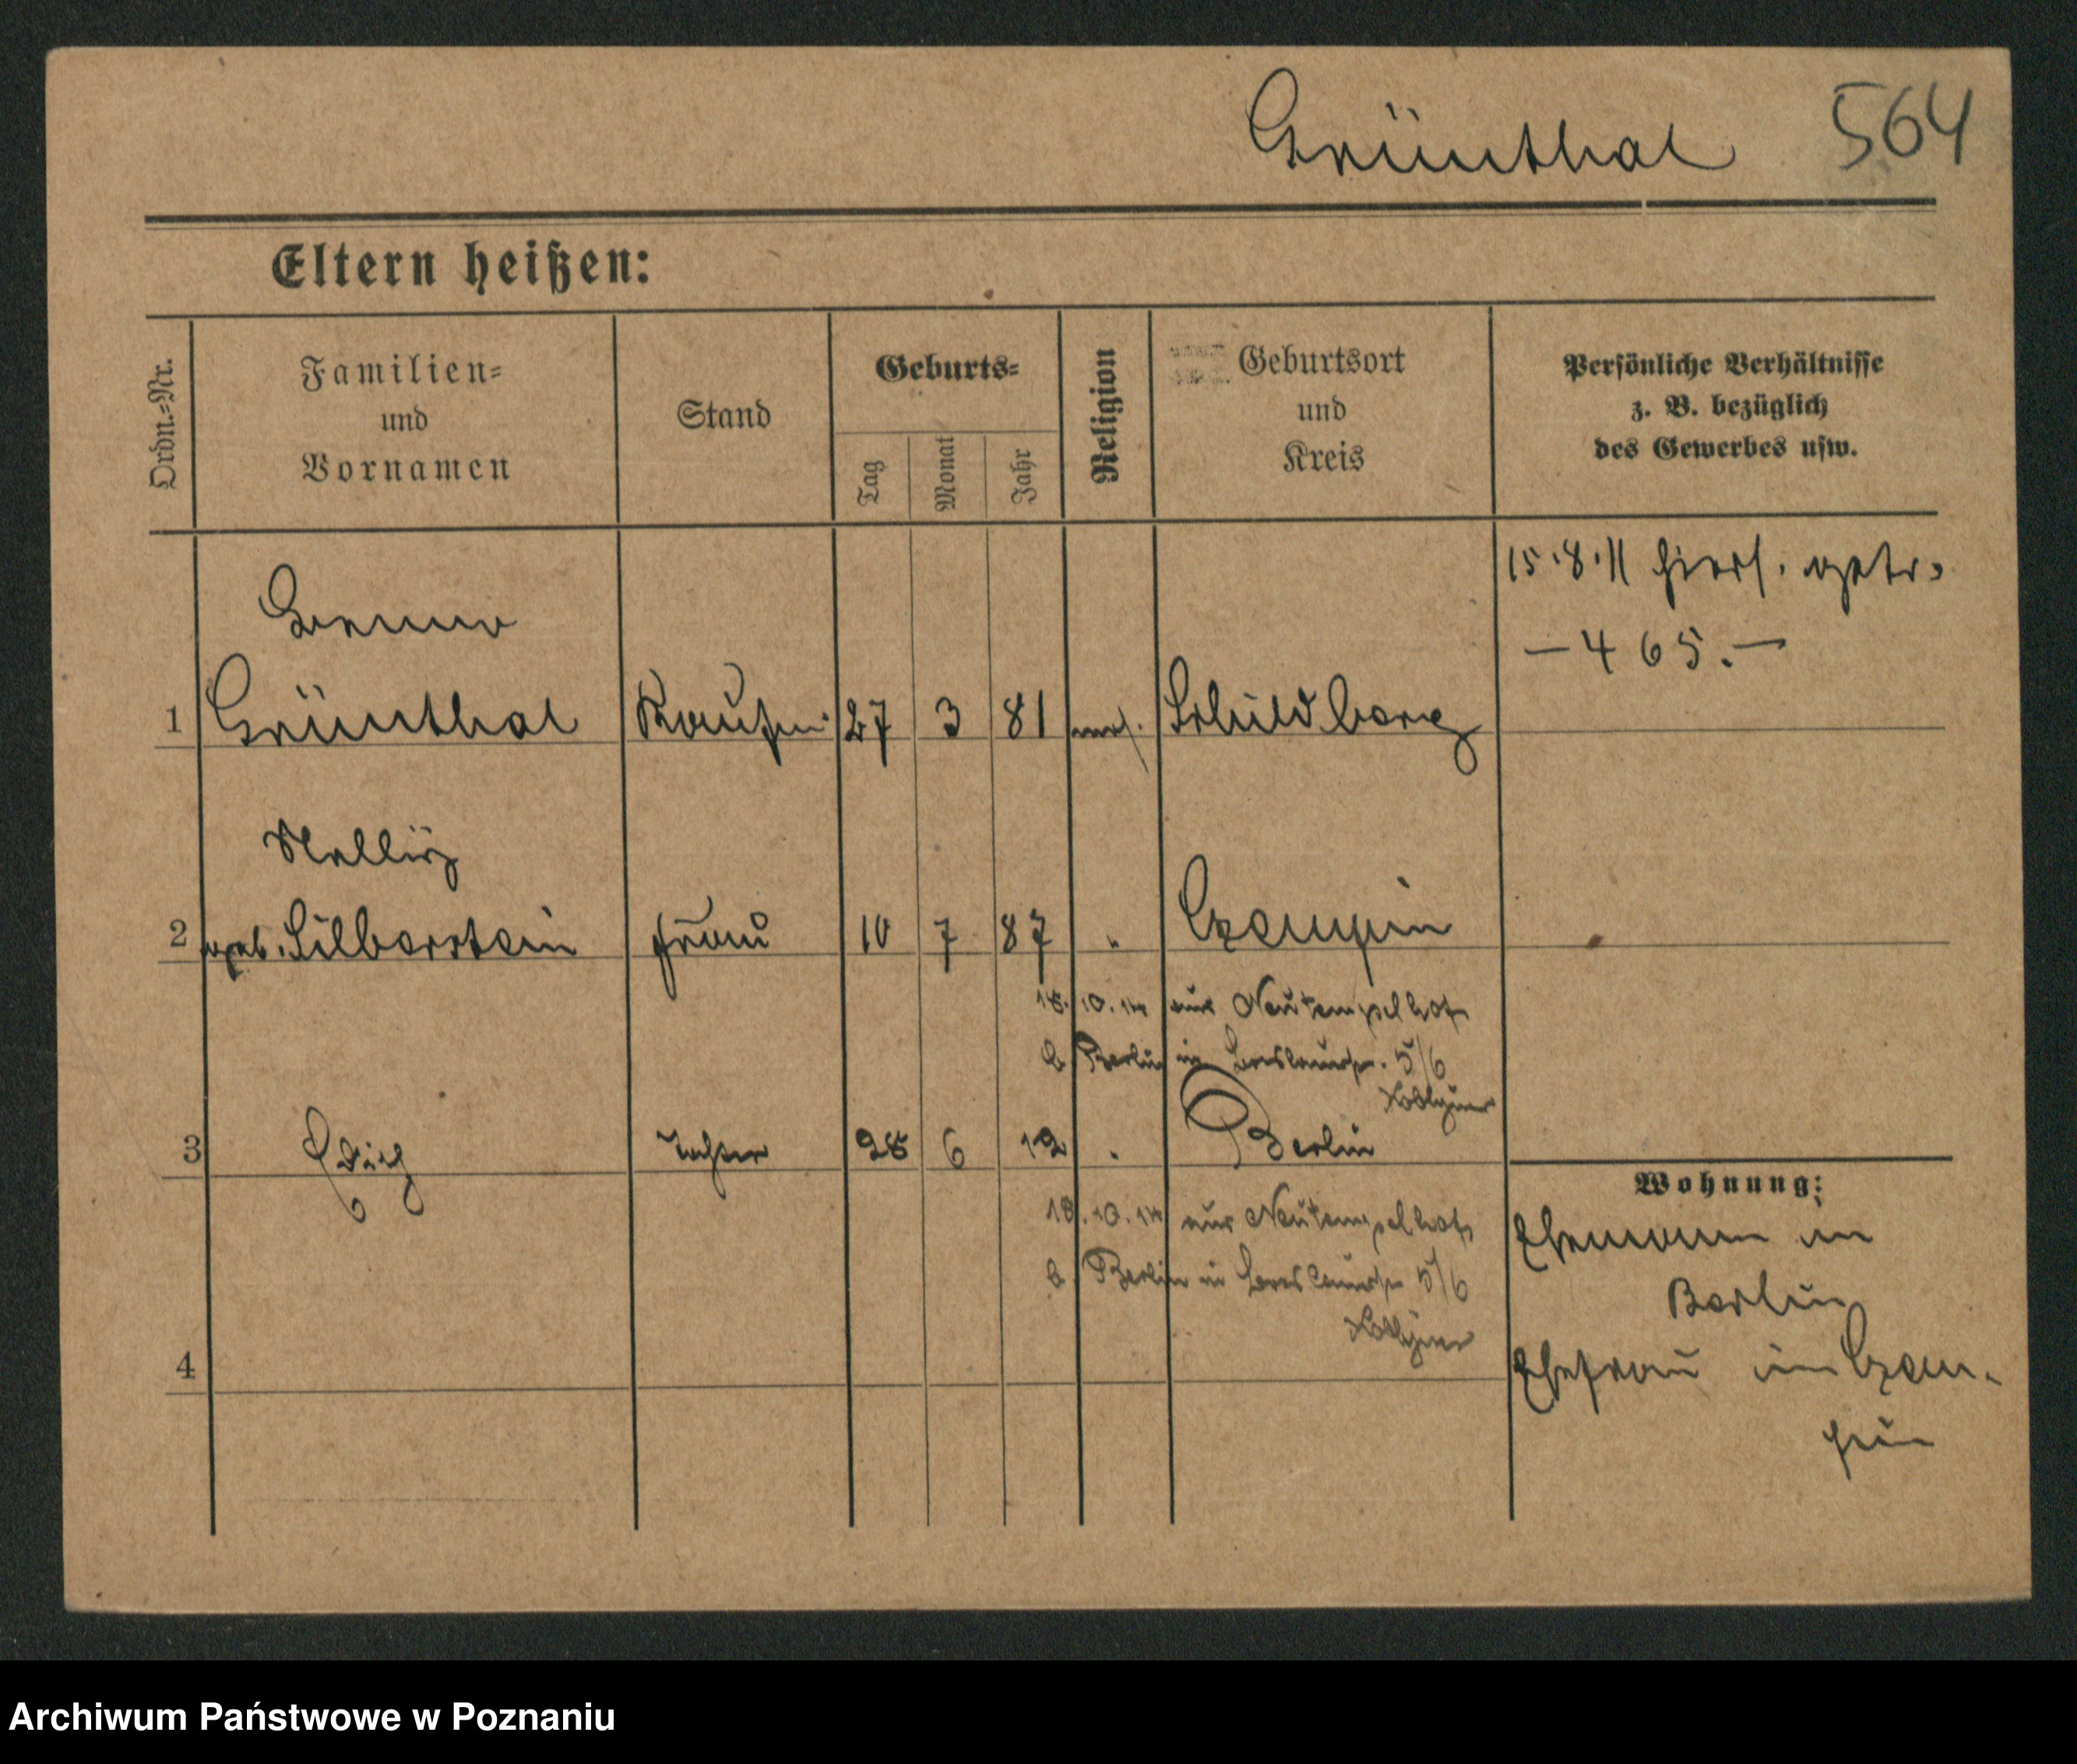 Grünthal 564
Eltern heißen:
Ordn.=Nr.
Familien=
und
Vornamen
Stand
Geburts=
Tag
Monat
Jahr
Religion
Geburtsort
und
Kreis
Persönliche Verhältnisse
z. B. bezüglich
des Gewerbes usw.
15.8.11 hiers. getr.
— 465. —
Benno
1 Grünthal Kaufm. 27 3 81 mos. Schildberg
2 geb. Silberstein Frau 10 7 87 " Czempin
18.10.14 aus Neutempelhof
b Berlin in Breslauerstr. 5/6
3 Tochter 28 6 12 . Berlin
Wohnung:
18.10.14 aus Neutempelhof
b. Berlin in Breslauerstr 5/6
Ehemann in
Berlin
4
Ehefrau in Czem-
pin
Archiwum Państwowe w Poznaniu